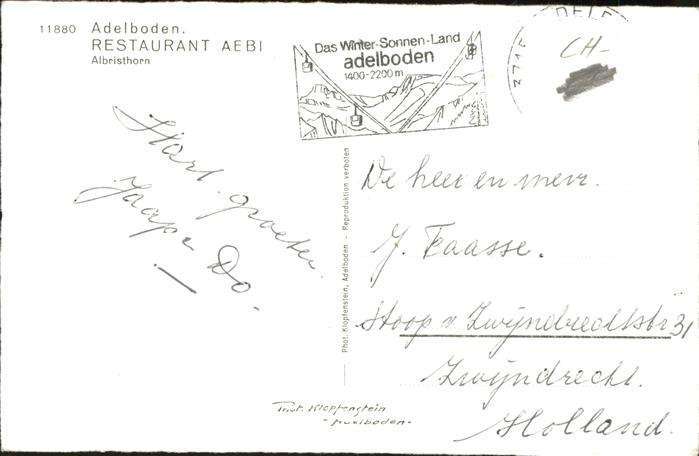 11880 Adelboden.
RESTAURANT AEBI
Albristhorn
Das Winter-Sonnen-Land
adelboden
1400-2200 m
CH-
Hart. groeten.
Jaap e Do.
Phot. Klopfenstein, Adelboden - Reproduktion verboten
De heer en mevr.
J. Faasse.
Stoop v Zwijndrechtstr 31
Zwijndrecht.
Holland.
Phot. Klopfenstein
- Adelboden -